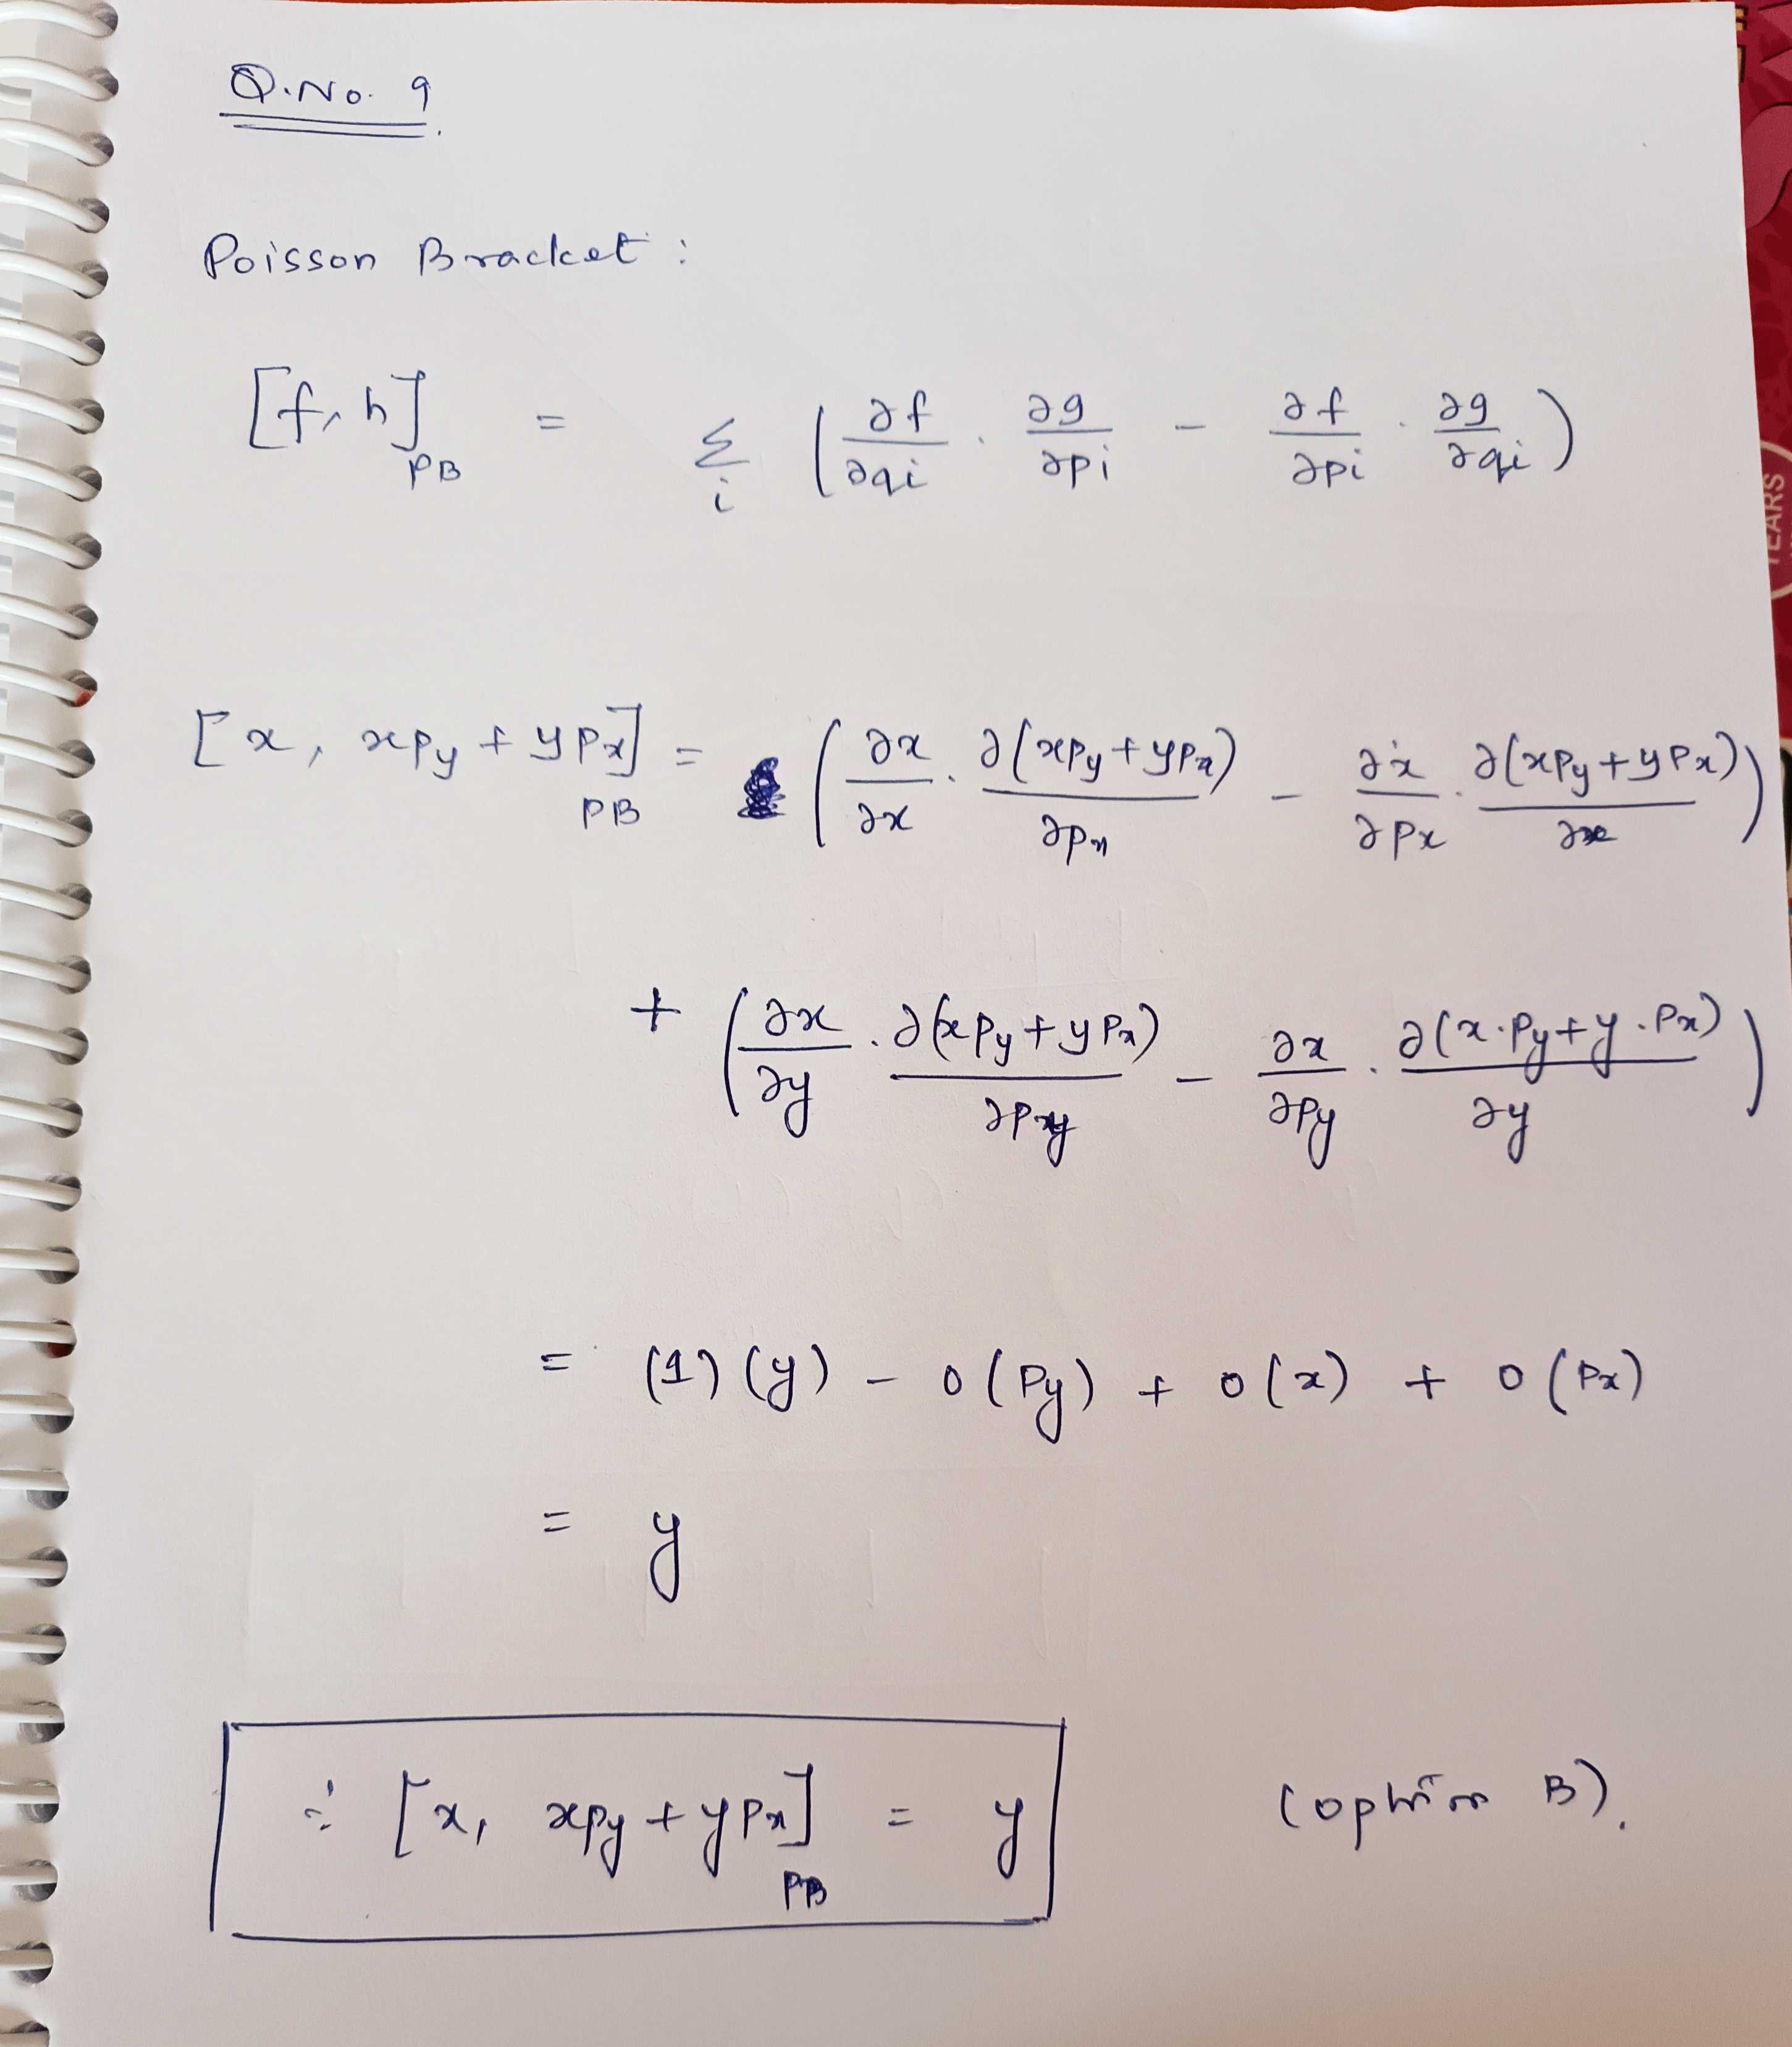 Q.No. 9.
Poisson Bracket :
[f, h]_PB = Σ_i (∂f/∂qi . ∂g/∂pi − ∂f/∂pi . ∂g/∂qi)
[x, xpy + ypx]_PB = (∂x/∂x . ∂(xpy + ypx)/∂px − ∂x/∂px . ∂(xpy + ypx)/∂x)
+ (∂x/∂y . ∂(xpy + ypx)/∂py − ∂x/∂py . ∂(x.py + y.px)/∂y)
= (1) (y) − 0 (py) + 0 (x) + 0 (px)
= y
∴ [x, xpy + ypx]_PB = y (option B).
YEARS